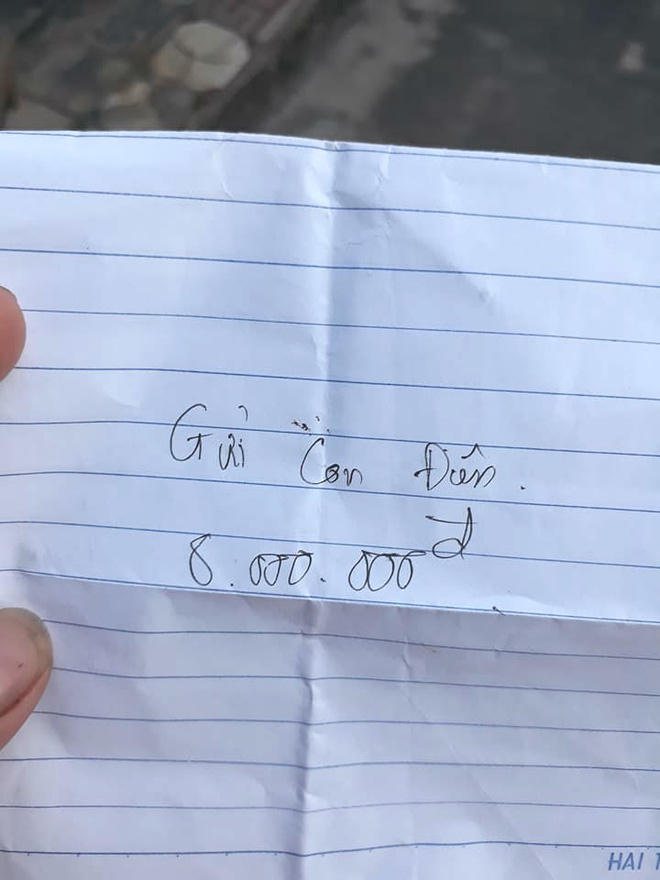 Gửi Con Điền.
8.000.000đ
HAI T